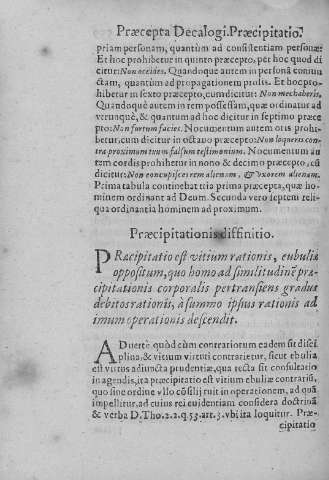 Præcepta Decalogi. Præcipitatio.
priam personam, quantum ad consistentiam personæ:
Et hoc prohibetur in quinto præcepto, per hoc quod di
citur: Non occides. Quandoque autem in persona coniun
ctam, quantum ad propagationem prolis. Et hoc pro-
hibetur in sexto præcepto, cum dicitur: Non mechaberis.
Quandoquè autem in rem possessam, quæ ordinatur ad
verunquè, & quantum ad hoc dicitur in septimo præce
pto: Non furtum facies. Nocumentum autem oris prohi-
betur, cum dicitur in octauo præcepto: Non loqueris con-
tra proximum tuum falsum testimonium. Nocumentum au
tem cordis prohibetur in nono & decimo præcepto, cū
dicitur: Non concupisces rem alienam, & vxorem alienam.
Prima tabula continebat tria prima præcepta, quæ ho-
minem ordinant ad Deum. Secunda vero septem reli-
qua ordinantia hominem ad proximum.
Præcipitationis diffinitio.
PRæcipitatio est vitium rationis, eubuliæ
oppositum, quo homo ad similitudinē præ-
cipitationis corporalis pertransiens gradus
debitos rationis, à summo ipsius rationis ad
imum operationis descendit.
ADuerte quòd cùm contrariorum eadem sit disci
plina, & vitium virtuti contrarietur, sicut eubulia
est virtus adiuncta prudentiæ, qua recta fit consultatio
in agendis, ita præcipitatio est vitium ebuliæ contrariū,
quo sine ordine vllo cōsilij ruit in operationem, ad quā
impellitur, ad cuius rei euidentiam considera doctrinā
& verba D. Tho. 2. 2. q. 53. art. 3. vbi ita loquitur. Præ-
cipitatio